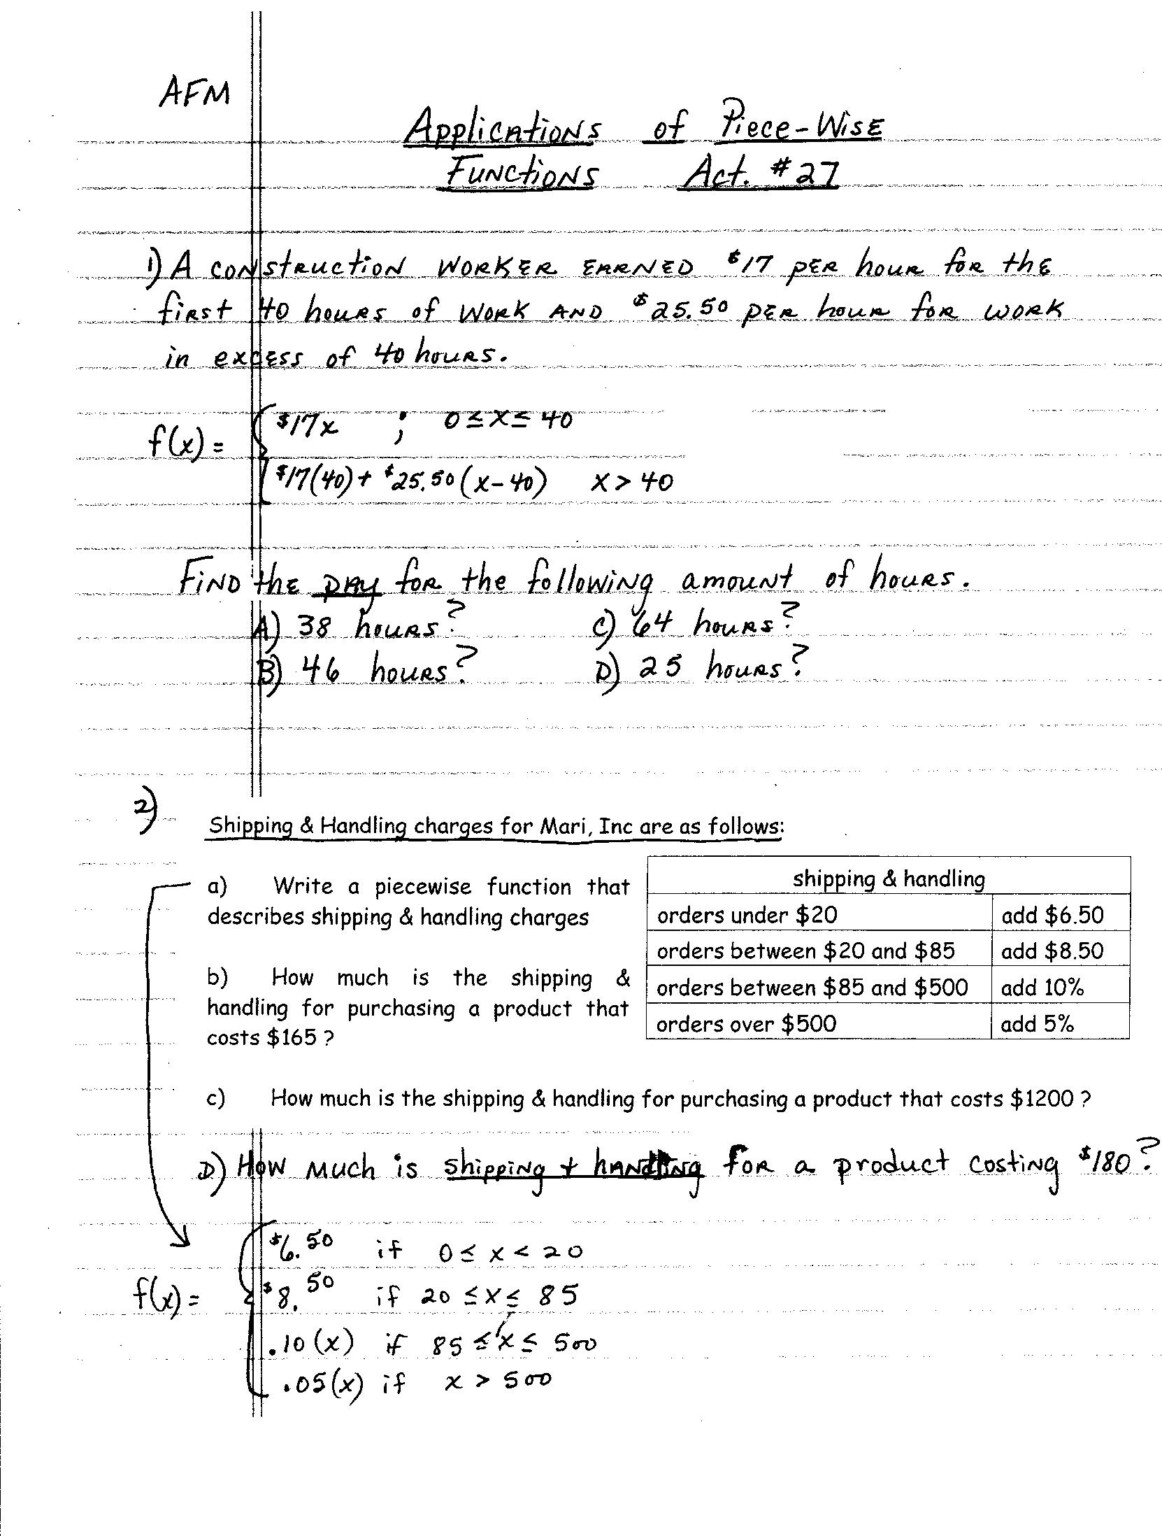 AFM
Applications of Piece-Wise
Functions Act. #27
1) A construction worker earned $17 per hour for the
first 40 hours of work and $25.50 per hour for work
in excess of 40 hours.
f(x) = { $17x ; 0 ≤ x ≤ 40
$17(40) + $25.50(x-40) x > 40
Find the pay for the following amount of hours.
A) 38 hours? C) 64 hours?
B) 46 hours? D) 25 hours?
2) Shipping & Handling charges for Mari, Inc are as follows:
a) Write a piecewise function that
describes shipping & handling charges
b) How much is the shipping &
handling for purchasing a product that
costs $165 ?
shipping & handling
orders under $20 add $6.50
orders between $20 and $85 add $8.50
orders between $85 and $500 add 10%
orders over $500 add 5%
c) How much is the shipping & handling for purchasing a product that costs $1200 ?
D) How much is shipping + handling for a product costing $180?
f(x) = { $6.50 if 0 ≤ x < 20
$8.50 if 20 ≤ x ≤ 85
.10(x) if 85 ≤ x ≤ 500
.05(x) if x > 500